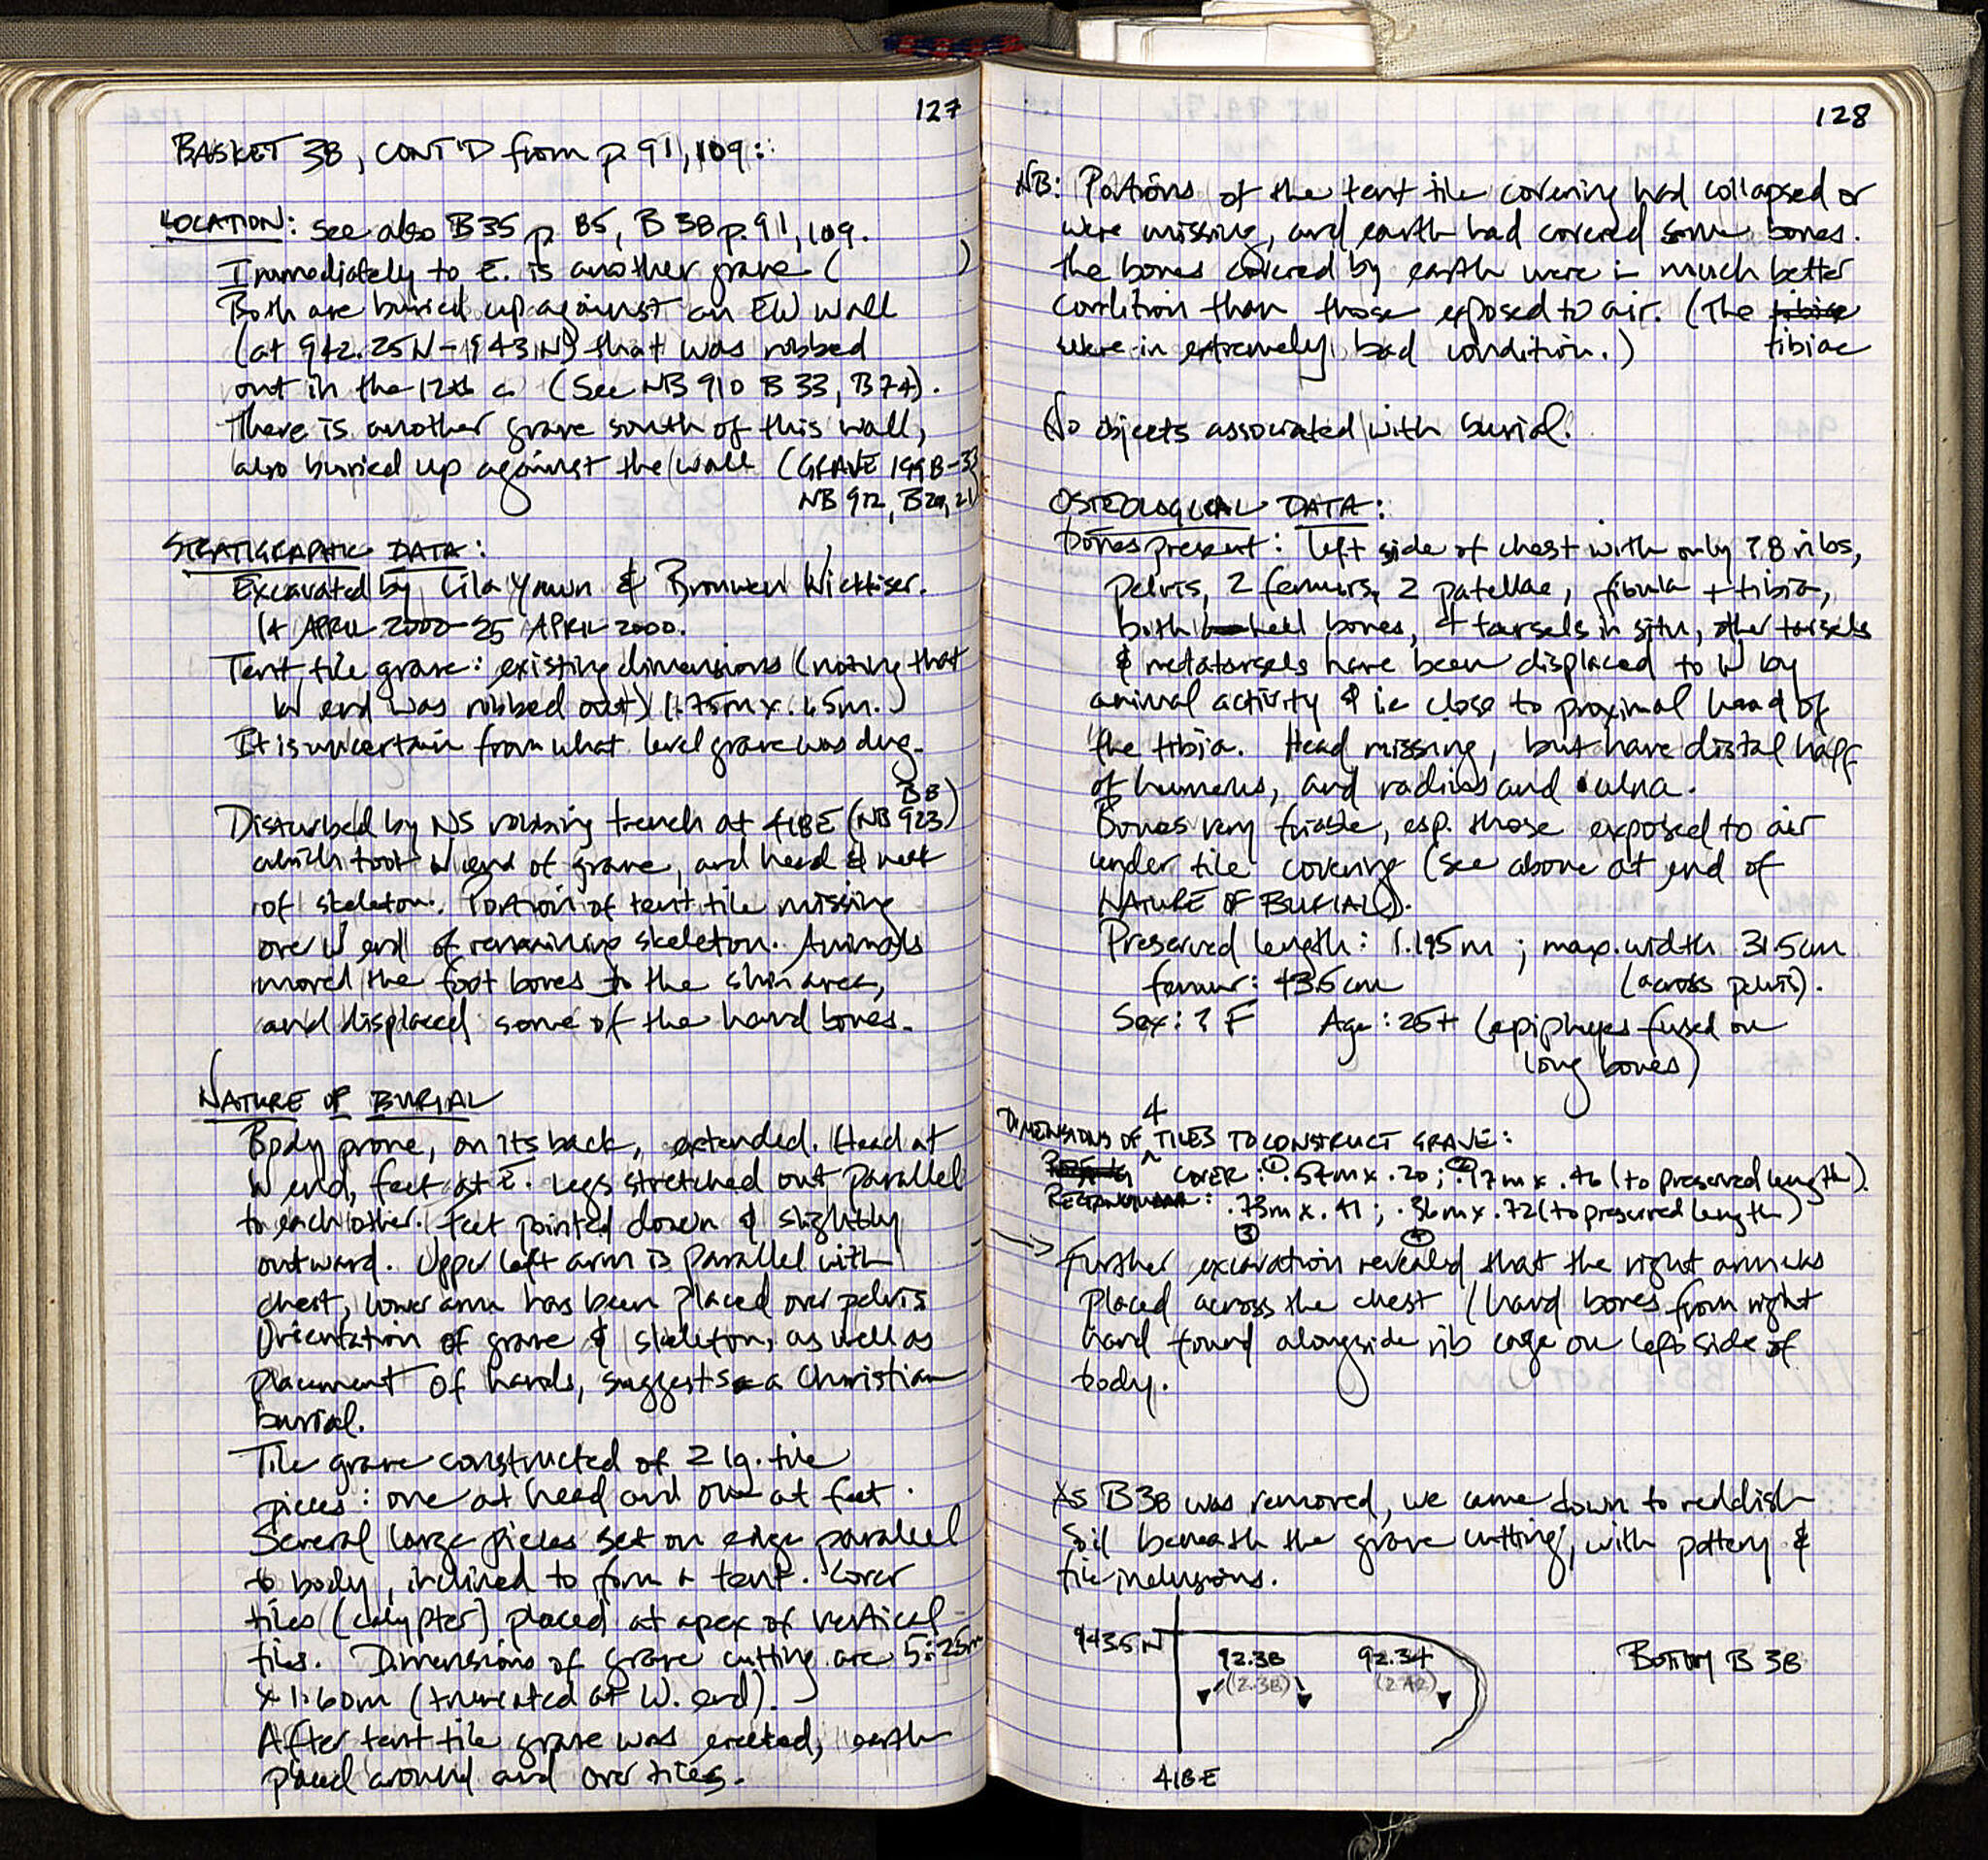 127
BASKET 38, CONT'D from p. 91, 109:
LOCATION: see also B35 p. 85, B38 p. 91, 109.
Immediately to E. is another grave (          )
Both are buried up against an EW wall
(at 942.25N-943N) that was robbed
out in the 12th c. (See NB 910 B33, B74).
There is another grave south of this wall,
also buried up against the wall (GRAVE 1998-33
NB 912, B20, 21)
STRATIGRAPHIC DATA:
Excavated by Lila Yawn & Bronwen Wickkiser.
14 APRIL 2000-25 APRIL 2000.
Tent tile grave: existing dimensions (noting that
W end was robbed out) 1.75m x .65m.
It is uncertain from what level grave was dug.
B8
Disturbed by NS robbing trench at 418E (NB 923)
which took W end of grave, and head & neck
of skeleton. Portion of tent tile missing
over W end of remaining skeleton. Animals
moved the foot bones to the shin area,
and displaced some of the hand bones.
NATURE OF BURIAL
Body prone, on its back, extended. Head at
W end, feet at E. Legs stretched out parallel
to each other. Feet pointed down & slightly
outward. Upper left arm is parallel with
chest, lower arm has been placed over pelvis
Orientation of grave & skeleton, as well as
placement of hands, suggests a Christian
burial.
Tile grave constructed of 2 lg. tile
pieces: one at head and one at feet.
Several large pieces set on edge parallel
to body, inclined to form a tent. Cover
tiles (calypter) placed at apex of vertical
tiles. Dimensions of grave cutting are
x 1.60m (truncated at W. end).
After tent tile grave was erected, earth
placed around and over tiles.
128
NB: Portions of the tent tile covering had collapsed or
were missing, and earth had covered some bones.
The bones covered by earth were in much better
condition than those exposed to air. (The tibiae
were in extremely bad condition.) tibiae
No objects associated with burial.
OSTEOLOGICAL DATA:
bones present: left side of chest with only ?8 ribs,
pelvis, 2 femurs, 2 patellae, fibula + tibia,
both heel bones, 4 tarsels in situ, other tarsels
& metatarsels have been displaced to W by
animal activity & lie close to proximal head of
the tibia. Head missing, but have distal half
of humerus, and radius and ulna.
Bones very friable, esp. those exposed to air
under tile covering (see above at end of
NATURE OF BURIAL).
Preserved length: 1.195m; max. width 31.5cm
femur: 43.5cm (across pelvis).
Sex: ? F Age: 25+ (epiphyes fused on
long bones)
4
DIMENSIONS OF ^ TILES TO CONSTRUCT GRAVE:
COVER: ① .57m x .20; ② .97m x .46 (to preserved length).
RECTANGULAR: .73m x .41; .36m x .72 (to preserved length)
③ ④
→ Further excavation revealed that the right arm was
placed across the chest (hand bones from right
hand found alongside rib cage on left side of
body.
As B38 was removed, we came down to reddish
soil beneath the grave cutting, with pottery &
tile inclusions.
943.5N
92.38 92.34
(2.38) (2.42)
BOTTOM B 38
418E